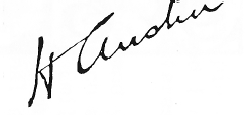 H Austin